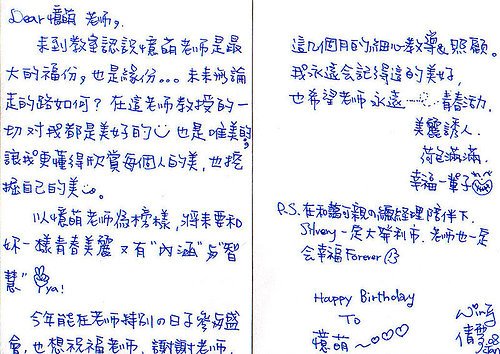 Dear 憶萌 老師,
來到教室認識憶萌老師是最
大的福份, 也是緣份。。。未來無論
走的路如何? 在這老師教授的一
切對我都是美好的 也是唯美的,
讓我更懂得欣賞每個人的美, 也挖
掘自己的美。
以憶萌老師為榜樣, 將來要和
妳一樣青春美麗 又有"內涵"与"智
慧" ya!
今年能在老師特別の日子參與盛
會, 也想祝福老師, 謝謝老師,
這几個月的細心教導&照顧。
我永遠会記得這的美好,
也希望老師永遠……青春活力.
美麗誘人.
荷包滿滿.
幸福一輩子
P.S. 在和藹可親の 經理陪伴下.
一定大發利市. 老師也一定
会幸福 Forever
Happy Birthday
To
憶萌 ~
倩